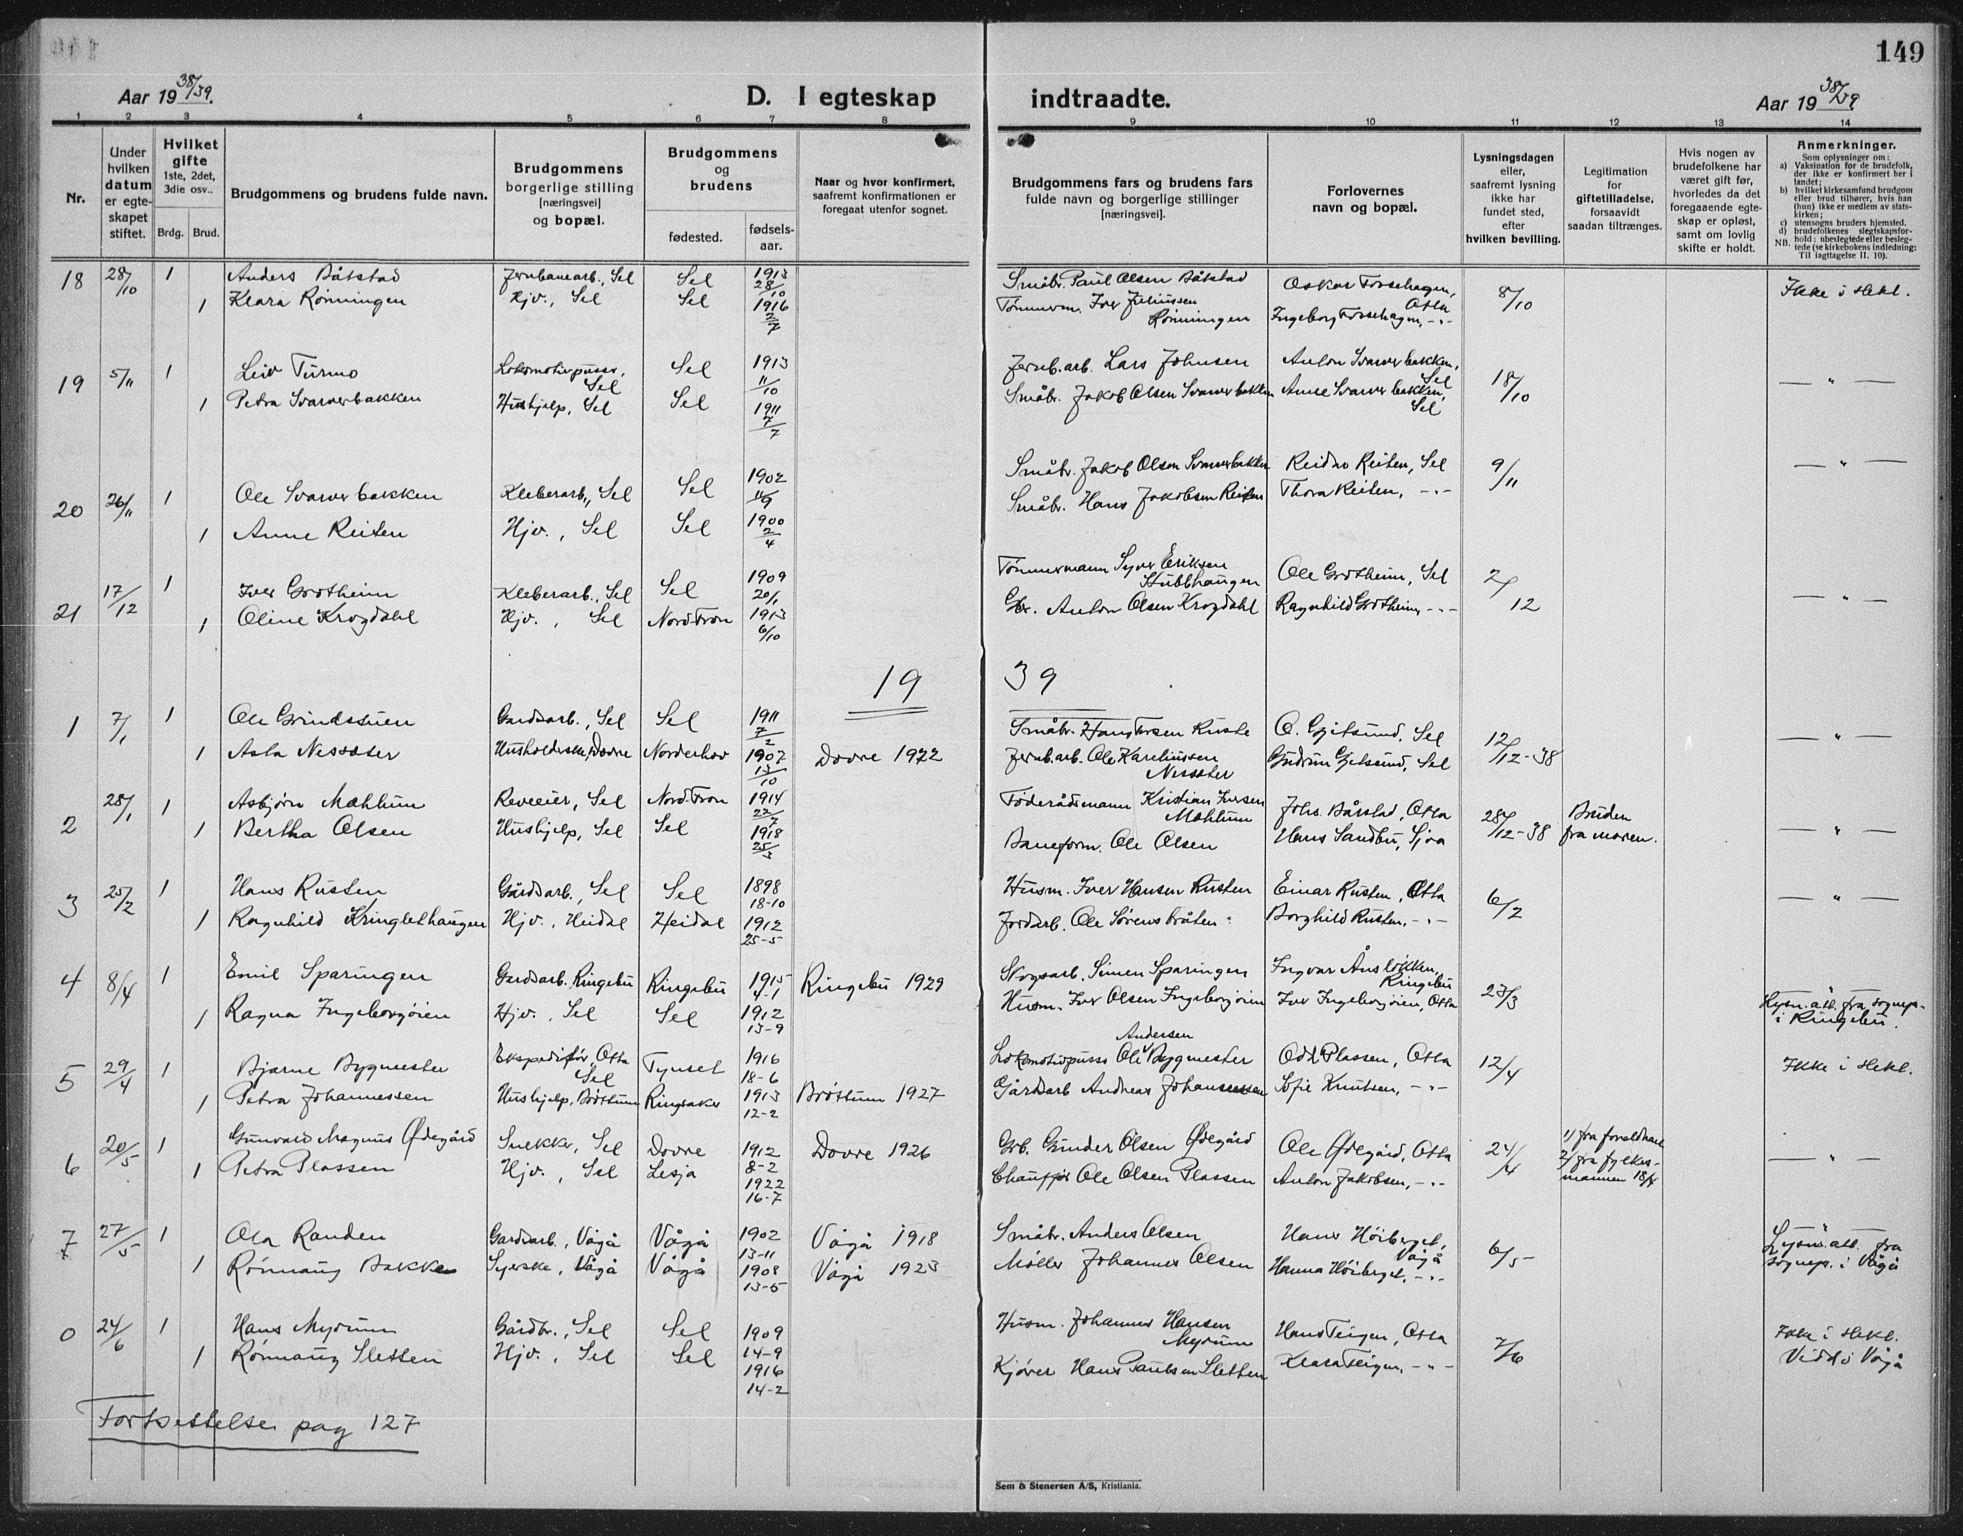 149
Aar 19 38/39.
D. I egteskap indtraadte.
Aar 19 38/39
1 2 3 4 5 6 7 8 9 10 11 12 13 14
Nr.
Under hvilken datum er egteskapet stiftet.
Hvilket gifte 1ste, 2det, 3die osv..
Brdg. Brud.
Brudgommens og brudens fulde navn.
Brudgommens borgerlige stilling [næringsvei] og bopæl.
Brudgommens og brudens
fødested. fødsels-aar.
Naar og hvor konfirmert, saafremt konfirmationen er foregaat utenfor sognet.
Brudgommens fars og brudens fars fulde navn og borgerlige stillinger [næringsvei].
Forlovernes navn og bopæl.
Lysningsdagen eller, saafremt lysning ikke har fundet sted, efter hvilken bevilling.
Legitimation for giftetilladelse, forsaavidt saadan tiltrænges.
Hvis nogen av brudefolkene har været gift før, hvorledes da det foregaaende egteskap er opløst, samt om lovlig skifte er holdt.
Anmerkninger.
Som oplysninger om:
a) Vaksination for de brudefolk, der ikke er konfirmert her i landet;
b) hvilket kirkesamfund brudgom eller brud tilhører, hvis han (hun) ikke er medlem av statskirken;
c) utensogns bruders hjemsted.
d) brudefolkenes slegtskapsforhold: ubeslegtede eller beslegtede (se kirkebokens indledning:
NB. Til iagttagelse II. 10).
18 28/10 1 Anders Båtstad Jernbanearb., Sel Sel 1913 28/10 Småbr. Paul Olsen Båtstad Oskar Fossehagen, Otta 8/10 Ikke i slekt.
1 Klara Rønningen Hjv., Sel Sel 1916 Tømmerm. Iver Juliussen Rønningen Ingeborg Fossehagen, -"-
19 5/11 1 Leiv Turmo Lokomotivpuss., Sel Sel 1913 11/10 Jernb.arb. Lars Johnsen Anton Svarverbakken, Sel 18/10 — " —
1 Petra Svarverbakken Hushjelp, Sel Sel 1911 7/7 Småbr. Jakob Olsen Svarverbakken Anne Svarverbakken, Sel
20 26/11 1 Ole Svarverbakken Kleberarb., Sel Sel 1902 11/9 Småbr. Jakob Olsen Svarverbakken Reidar Reiten, Sel 9/11 — " —
1 Anne Reiten Hjv., Sel Sel 1900 2/4 Småbr. Hans Jakobsen Reiten Thora Reiten, -"-
21 17/12 1 Iver Grotheim Kleberarb., Sel Sel 1909 20/1 Tømmermann Syver Eriksen Stubbhaugen Ole Grotheim, Sel 2/12 — " —
1 Oline Krogdahl Hjv., Sel Nord-Fron 1913 6/10 Gbr. Anton Olsen Krogdahl Ragnhild Grotheim, -"-
19 39
1 7/1 1 Ole Grindstuen Gardsarb., Sel Sel 1911 7/2 Småbr. Hans Iversen Ruste O. Gjetsund, Sel 12/12-38 — " —
1 Asta Nessæter Husholderske, Dovre Norderhov 1907 13/10 Dovre 1922 Jernb.arb. Ole Kareliussen Nessæter Gudrun Gjetsund, Sel
2 28/1 1 Asbjørn Mæhlum Reveeier, Sel Nord-Fron 1914 22/7 Føderådsmann Kristian Iversen Mæhlum Johs. Bårstad, Otta 28/12-38 Bruden fra moren. — " —
1 Bertha Olsen Hushjelp, Sel Sel 1918 25/3 Baneform. Ole Olsen Hans Sandbu, Sjoa
3 25/2 1 Hans Rusten Gårdsarb., Sel Sel 1898 18-10 Husm. Iver Hansen Rusten Einar Rusten, Otta 6/2 — " —
1 Ragnhild Kringlethaugen Hjv., Heidal Heidal 1912 25-5 Jordarb. Ole Sørensbråten Borghild Rusten, -"-
4 8/4 1 Emil Sparingen Gardsarb. Ringebu Ringebu 1915 4-1 Ringebu 1929 Skogsarb. Simen Sparingen Ingvar Ausløkken, Ringebu 23/3 Lysn.att. fra sognep. i Ringebu.
1 Ragna Ingeborgøien Hjv., Sel Sel 1912 13-9 Husm. Iver Olsen Ingeborgøien Iver Ingeborgøien, Otta
5 29/4 1 Bjarne Bygmester Ekspeditør, Otta Sel Tynset 1916 18-6 Lokomotivpuss Ole Andersen Bygmester Odd Plassen, Otta 12/4 Ikke i slekt.
1 Petra Johannessen Hushjelp, Brøttum Ringsaker 1913 12-2 Brøttum 1927 Gårdsarb Andreas Johannessen Sofie Knutsen, -"-
6 20/5 1 Gunvald Magnus Ødegård Snekker, Sel Dovre 1912 8-2 Dovre 1926 Grb. Gunder Olsen Ødegård Ole Ødegård, Otta 24/4 1/ fra foreldrene 2/ fra fylkesmannen 18/4 — " —
1 Petra Plassen Hjv., Sel Lesja 1922 16-7 Chauffør Ole Olsen Plassen Anton Jakobsen, -"-
7 27/5 1 Ola Randen Gardsarb., Vågå Vågå 1902 13-11 Vågå 1918 Småbr. Anders Olsen Hans Høiberget, Vågå 6/5 Lysn.att. fra sognep. i Vågå
1 Rønnaug Bakke Syerske, Vågå Vågå 1908 13-5 Vågå 1923 Møller Johannes Olsen Hanna Høiberget, -"-
0 24/6 1 Hans Myrum Gårdbr., Sel Sel 1909 14-9 Husm. Johannes Hansen Myrum Hans Teigen, Otta 7/6 Ikke i slekt.
1 Rønnaug Sletten Hjv., Sel Sel 1916 14-2 Kjører Hans Paulsen Sletten Klara Teigen, -"- Viddi Vågå
Fortsettelse pag 127
Sem & Stenersen A/S, Kristiania.